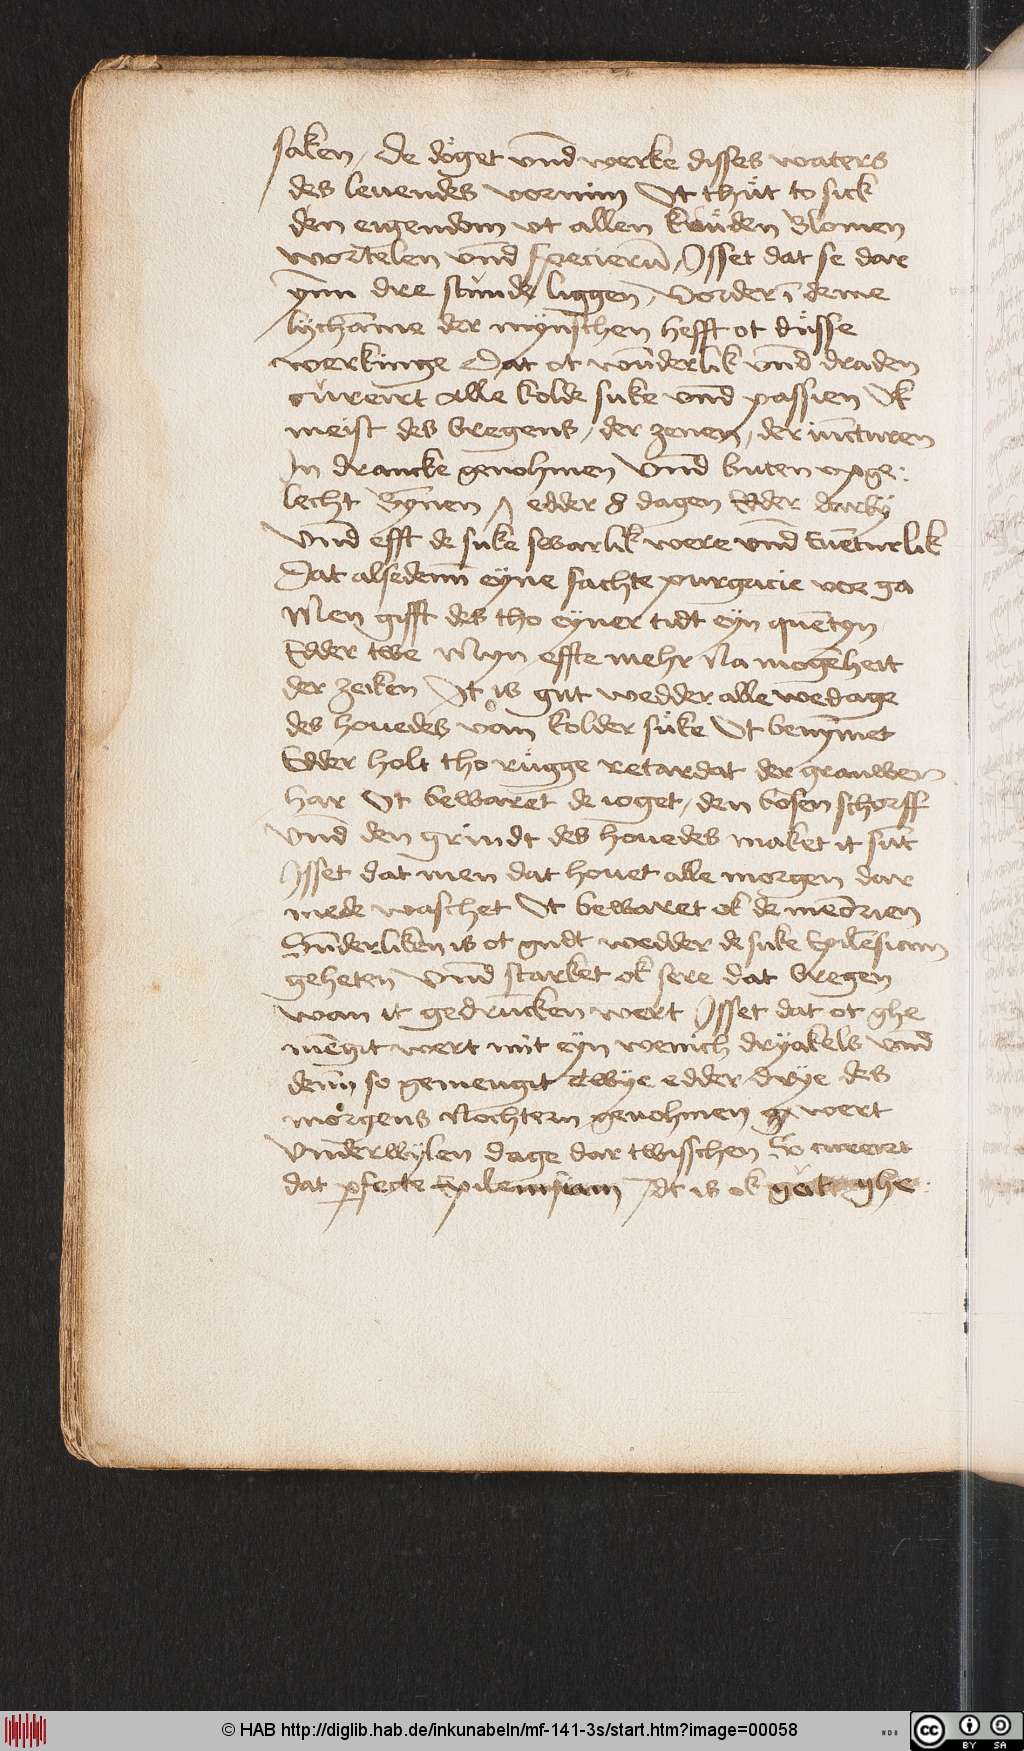 saken, de döget vnd werke disses waters
des leuendes vornim Vt thüt to sick
den eigendom vt allen krüden Blomen
wortelen vnd specierū, Isset dat se dar
ynn dre stunde liggen, Vorder ī deme
lychamme der mynschen hefft ot düsse
werkinge Dat ot wunderlik vnd draden
cureirt alle kolde suke vnd passien Vk
meist des bregens, der zenen, der iuncturen
In drancke genohmen Vnd buten vpge:
lecht Bynnen edder 8 dagen Edder darby
Vnd efft de suke swarlik were vnd Euēturlik
Dat alsedenn eyne sachte purgacie vor ga
Men gifft des tho eyner tidt eyn quētyn
Edder twe Myn effte mehr Na mogenheit
der zeiken It is gut wedder alle wedage
des houedes van kolder süke Vt benymet
Edder holt tho rügge retardat der grauwen
har Vt bewaret de ioget, den bosen schorff
Vnd den grindt des houedes maket it sūt
Isset dat men dat houet alle morgen dar
mede waschet Vt bewaret ok de memorien
Sūderliken is ot gudt wedder de suke Epilēsiam
geheten Vnd starket ok sere dat bregen
wan it gedruncken wert Isset dat ot ghe
mēgit wert mit eyn wenich dryakels vnd
denn so gemengit twye edder drye des
morgens Nochtern genohmen wert
Vnderwylen dage dar twisschen So cureert
dat pfecte Epilemsiam Idt is ok ghe:
© HAB http://diglib.hab.de/inkunabeln/mf-141-3s/start.htm?image=00058
WDB
cc BY SA